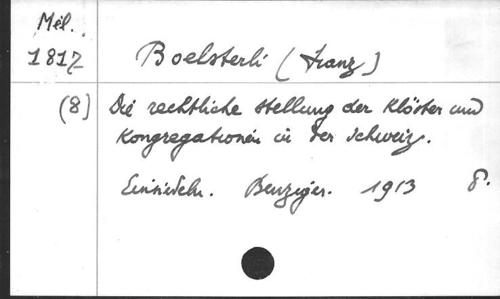 Mél.
1817 Boelsterli (Franz)
(8) Die rechtliche Stellung der Klöster und
Kongregationen in der Schweiz.
Einsiedeln. Benziger. 1913 8.